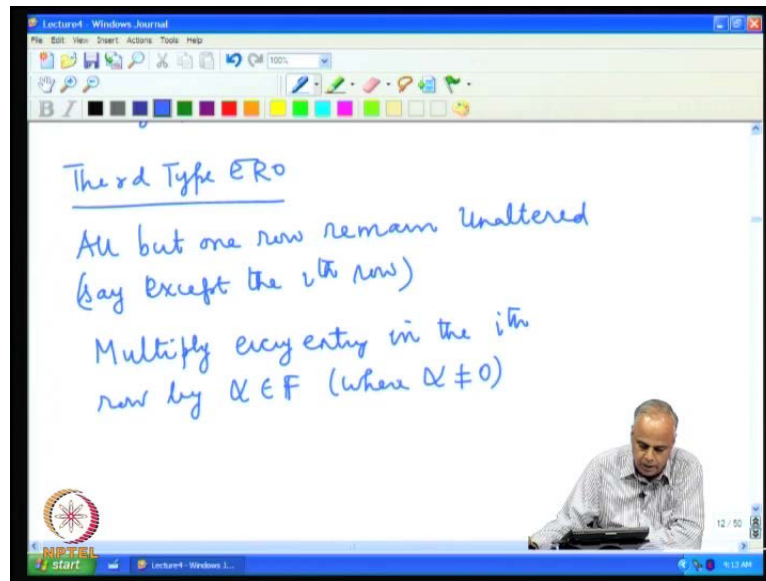 Lecture4 - Windows Journal
File Edit View Insert Actions Tools Help
100%
B I
Third Type ERO
All but one row remain unaltered
(say except the ith row)
Multiply every entry in the ith
row by α ∈ F (where α ≠ 0)
12 / 50
NPTEL
start
Lecture4 - Windows J...
9:13 AM